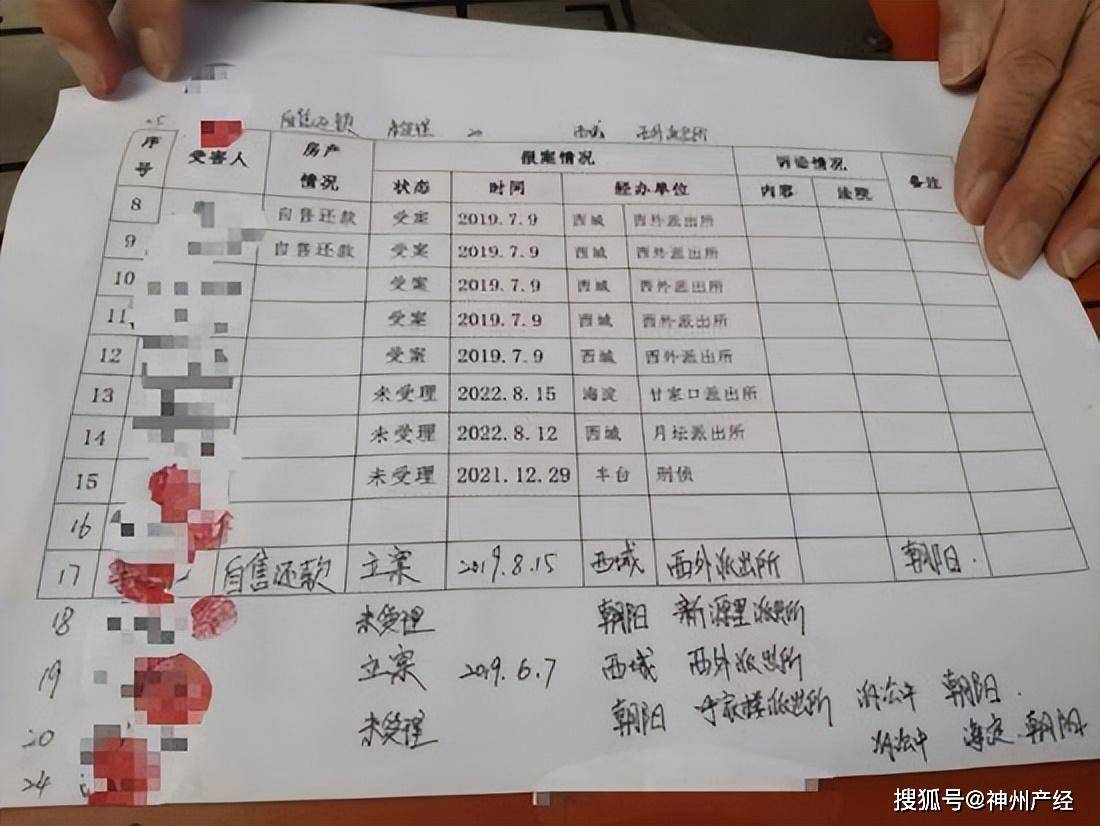 自售还款 西城 西外派出所
序号 受害人 房产情况 报案情况 诉讼情况 备注
状态 时间 经办单位 内容 法院
8 自售还款 受案 2019.7.9 西城 西外派出所
9 自售还款 受案 2019.7.9 西城 西外派出所
10 受案 2019.7.9 西城 西外派出所
11 受案 2019.7.9 西城 西外派出所
12 受案 2019.7.9 西城 西外派出所
13 未受理 2022.8.15 海淀 甘家口派出所
14 未受理 2022.8.12 西城 月坛派出所
15 未受理 2021.12.29 丰台 刑侦
16
17 自售还款 立案 2019.8.15 西城 西外派出所 朝阳.
18 未受理 朝阳 新源里派出所
19 立案 2019.6.7 西城 西外派出所
20 未受理 朝阳 呼家楼派出所 朝阳.
24 海淀.朝阳
搜狐号@神州产经